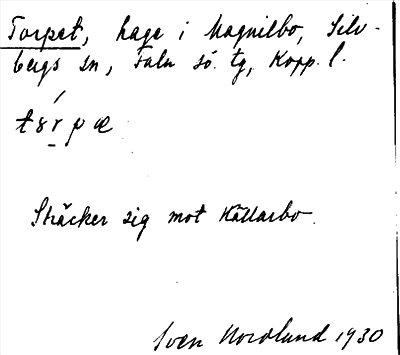 Torpet, hage i Magnilbo, Silv-
bergs sn, Falu sö. tg, Kopp. l.
Sträcker sig mot Källarbo.
Sven Nordlund 1930